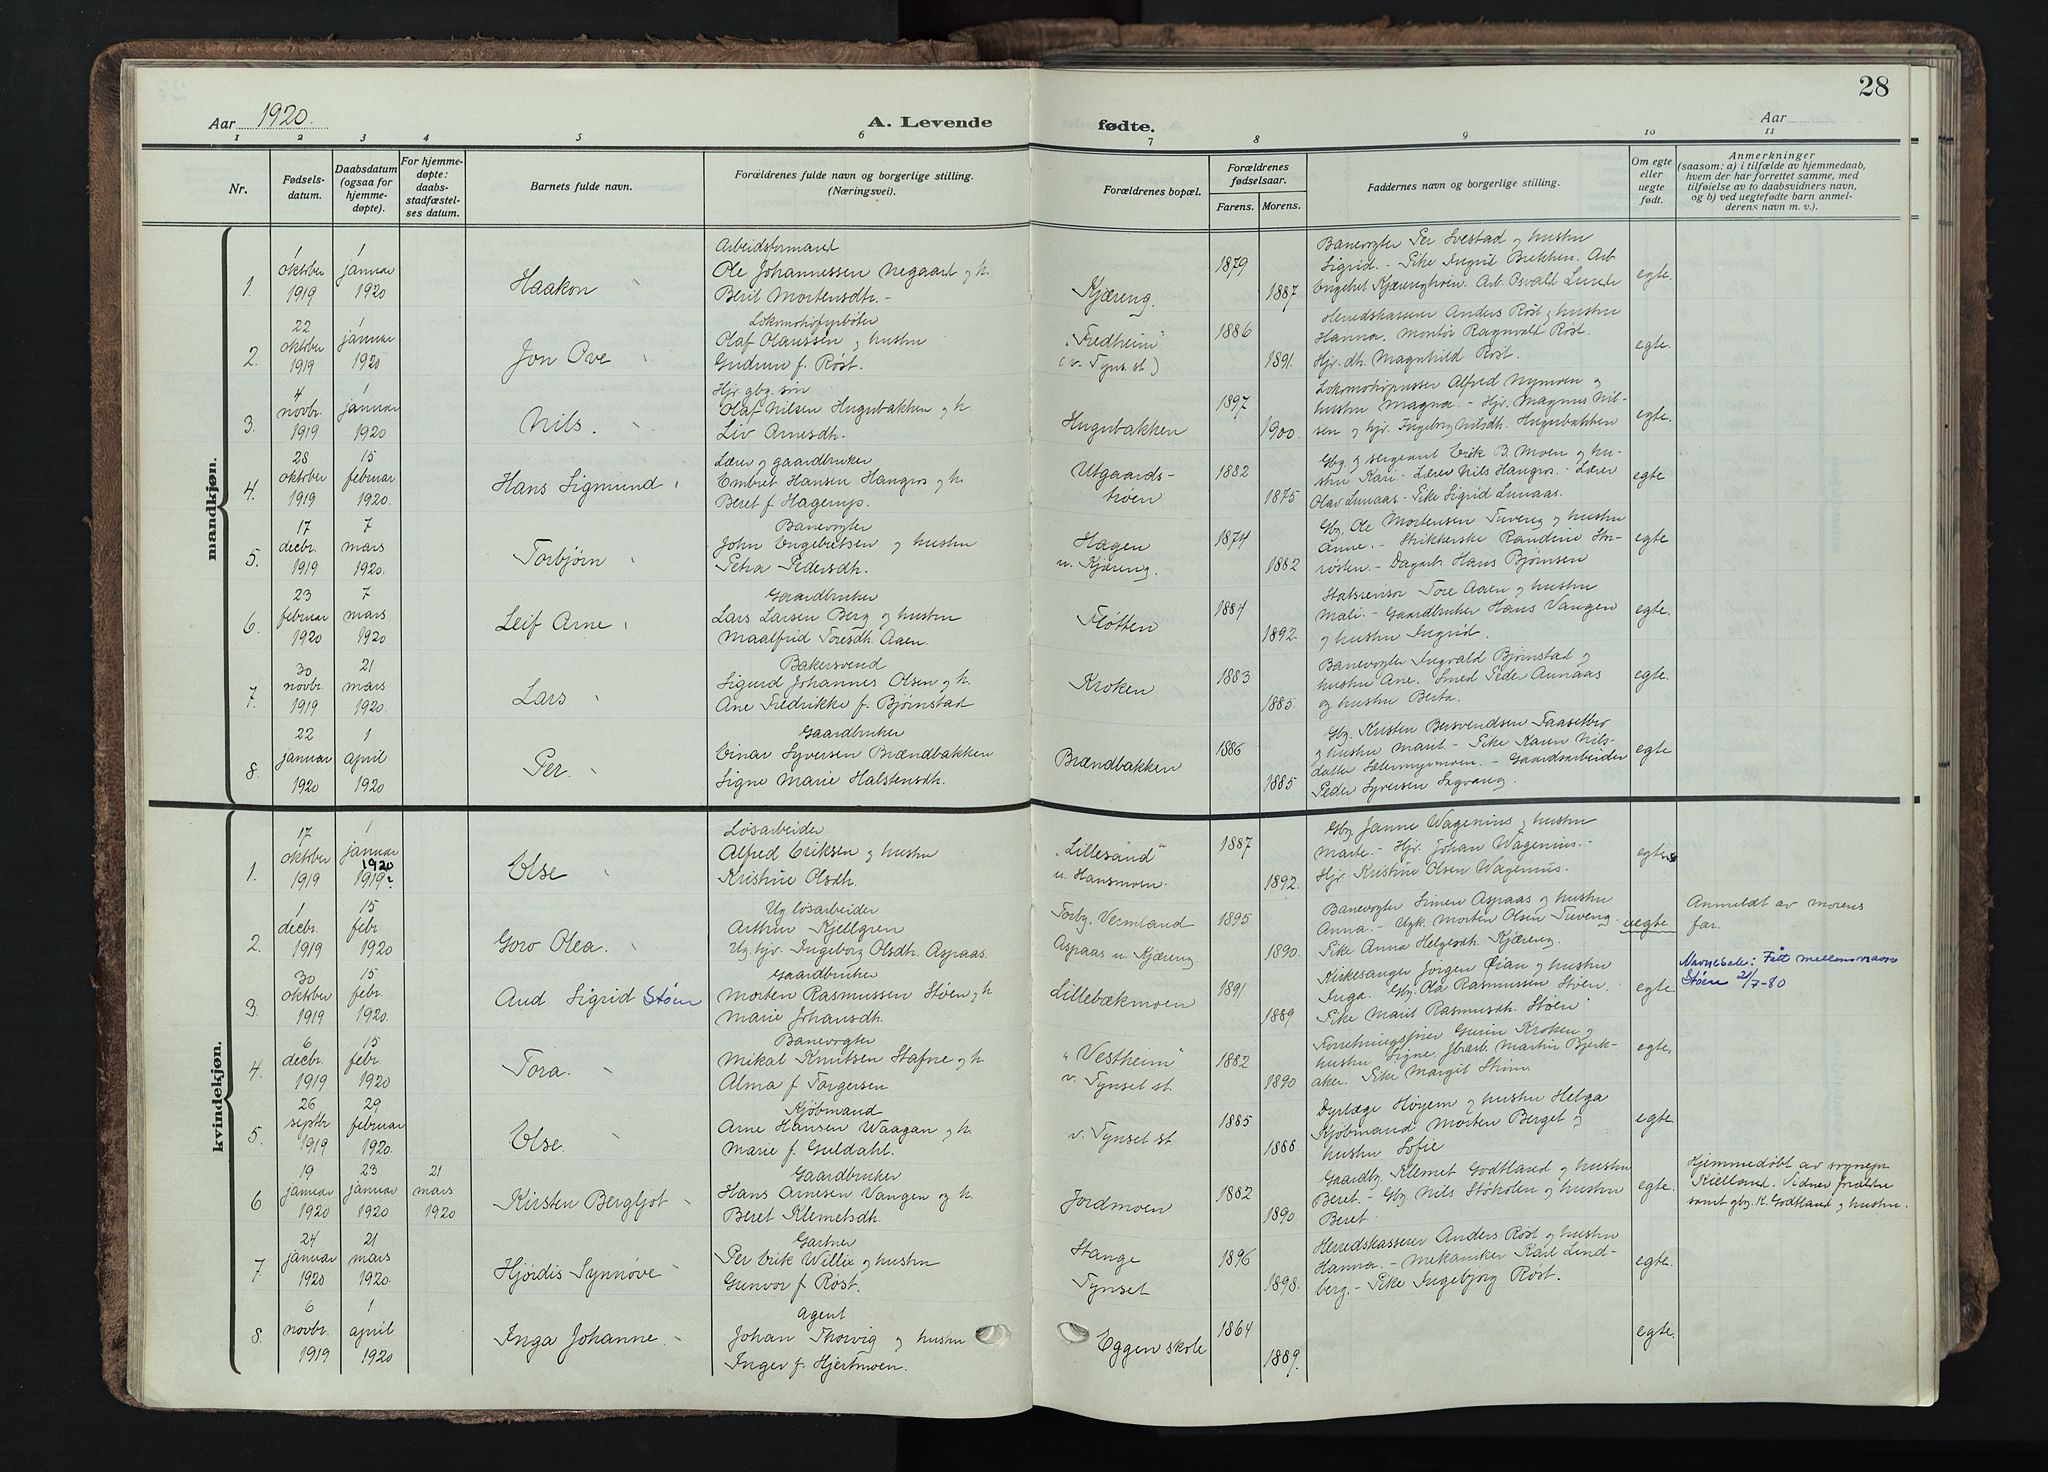 28
Aar 1920.
A. Levende fødte.
Aar
1 2 3 4 5 6 7 8 9 10 11
Nr.
Fødselsdatum.
Daabsdatum (ogsaa for hjemmedøpte).
For hjemmedøpte: daabsstadfæstelses datum.
Barnets fulde navn.
Forældrenes fulde navn og borgerlige stilling. (Næringsvei).
Forældrenes bopæl.
Forældrenes fødselsaar.
Farens. Morens.
Faddernes navn og borgerlige stilling.
Om egte eller uegte født.
Anmerkninger
(saasom: a) i tilfælde av hjemmedaab,
hvem der har forrettet samme, med
tilføielse av to daabsvidners navn,
og b) ved uegtefødte barn anmel-
derens navn m. v.).
mandkjøn.
1. 1 oktober 1919 1 januar 1920 Haakon
Arbeidsformand
Ole Johannessen Negaard og h.
Beril Mortensdh. -
Kjæreng.
1879 1887.
Banevogter Per Svestad og hustru
Sigrid. - Pike Ingrid Brekken. Arb
Engebret Kjærenghoien. Arb. Osvald Lunde
egte.
2. 22 oktober 1919 1 januar 1920 Jon Ove
Lokomotivfyrbøter
Olaf Olaussen og hustru
Gudrun f. Røst.
"Fredheim"
(v. Tyns. st.)
1886 1891.
Herredskasserer Anders Røst og hustru
Hanna. Montør Ragnvald Røst.
Hjr. dh. Magnhild Røst.
egte.
3. 4 novbr. 1919 1 januar 1920 Nils.
Hjr. gbg. søn
Olaf Nilsen Hugubakken og h.
Liv Arnesdh.
Hugubakken
1897 1900.
Lokomotivpusser Alfred Nymoen og
hustru Magna. - Hjr. Magnus Nil-
sen og hjr. Ingeborg Nilsdh. Hugubakken
egte.
4. 28 oktober 1919 15 februar 1920. Hans Sigmund
Lærer og gaardbruker
Embret Hansen Hangros og h.
Beret f. Hagerup.
Utgaards-
trøen
1882 1875
Gbg. og sergeant Erik B. Moen og hu-
stru Kari - Lærer Nils Hangros - Lærer
Olav Lunaas - Pike Sigrid Lunaas.
egte
5. 17 decbr. 1919 7 mars 1920. Torbjørn
Banevogter
John Engebretsen og hustru
Petra Pedersdh.
Hagen
u. Kjæreng.
1874 1882
Gbg. Ole Mortensen Tuveng og hustru
Anne. - Strikkerske Randine Stor-
røsten. - Dagarb. Hans Bjørnsen
egte
6. 23 februar 1920 7 mars 1920 Leif Arne
Gaardbruker
Lars Larsen Berg og hustru
Maalfrid Toresdh. Aaen.
Fløtten
1884 1892.
Statsrensor Tore Aaen og hustru
Mali - Gaardbruker Hans Vangen
og hustru Ingrid.
egte.
7. 30 novbr. 1919 21 mars 1920. Lars
Bakersvend
Sigurd Johannes Olsen og h.
Ane Fredrikke f. Bjørnstad
Kroken
1883 1885.
Banevogter Ingvald Bjørnstad og
hustru Ane. Smed Peder Aunaas
og hustru Berta.
egte.
8. 22 januar 1920 1 april 1920 Per.
Gaardbruker
Einar Syversen Brændbakken
Signe Marie Halstensdh.
Brændbakken
1886 1885
Gbg. Kristen Bersvendsen Taasetbro
og hustru Marit - Pike Karen Nils-
datter Sætermymoen. - Gaardsarbeider
Peder Syversen
egte
kvindekjøn.
1. 17 oktober 1919 1 januar 1920 1919. Else
Løsarbeider
Alfred Eriksen og hustru
Kristine Olsdh.
"Lillesand"
u. Hansmoen.
1887 1892.
Gbg. Janne Wagenius og hustru
Marte. - Hjr. Johan Wagenius. -
Hjr Kristine Olsen Wagenius.
egte
2. 1 decbr. 1919 15 febr. 1920 Goro Olea.
Ug. løsarbeider
Arthur Kjellgren
Ug. hjr. Ingeborg Olsdh. Aspaas.
Torbg. Vermland
Aspaas u. Kjæreng
1895 1890.
Banevogter Simen Aspaas og hustru
Anna. - Ugk. Morten Olsen Tuveng.
Pike Anna Helgesdh. Kjæreng.
uegte
Anmeldt av morens
far.
3. 30 oktober 1919 15 febr. 1920. Aud Sigrid Støen
Gaardbruker
Morten Rasmussen Støen og h
Marie Johansdh.
Lillebækmoen
1891 1889
Kirkesanger Jørgen Øian og hustru
Inga. Gbg. Ola Rasmussen Støen.
Pike Marit Rasmusdh. Støen
egte
Navnesak: Fått mellomnavn
Støen 21/7-80
4. 6 decbr. 1919 15 febr. 1920 Tora.
Banevogter
Mikal Knutsen Stafne og h.
Alma f Torgersen.
"Vestheim"
v. Tynset st.
1882 1890
Forretningsfører Gunn Kroken og
hustru Signe, Jbarb. Martin Bjerk-
aker. Pike Margit Strøm.
egte.
5. 26 septbr 1919 29 februar 1920. Else.
Kjøbmand
Arne Hansen Waagan og h.
Marie f. Guldahl.
v. Tynset st.
1885 1888.
Dyrlæge Høyem og hustru Helga
Kjøbmand Morten Berget og
hustru Sofie
egte
6 19 januar 1920 23 januar 1920 21 mars 1920 Kirsten Bergljot
Gaardbruker
Hans Arnesen Vangen og h.
Beret Klemetsdh.
Jordmoen
1882 1890.
Gaardbg. Klemet Godtland og hustru
Beret - Gbg Nils Støkolen og hustru
Beret.
egte.
Hjemmedøbt av sognepr
Kielland. Vidner forældre
samt gbg. K. Godtland og hustru.
7. 24 januar 1920 21 mars 1920. Hjørdis Synnøve
Gartner
Per Erik Willix og hustru
Gunvor f. Røst.
Stange
Tynset
1896 1898.
Herredskasserer Anders Røst og hustru
Hanna. - Mekaniker Karl Lind-
berg. - Pike Ingebjørg Røst.
egte.
8. 6 novbr. 1919 1 april 1920 Inga Johanne
Agent
Johan Thorvig og hustru
Inger f. Hjertmoen.
Eggen skole
1864 1889.
egte.